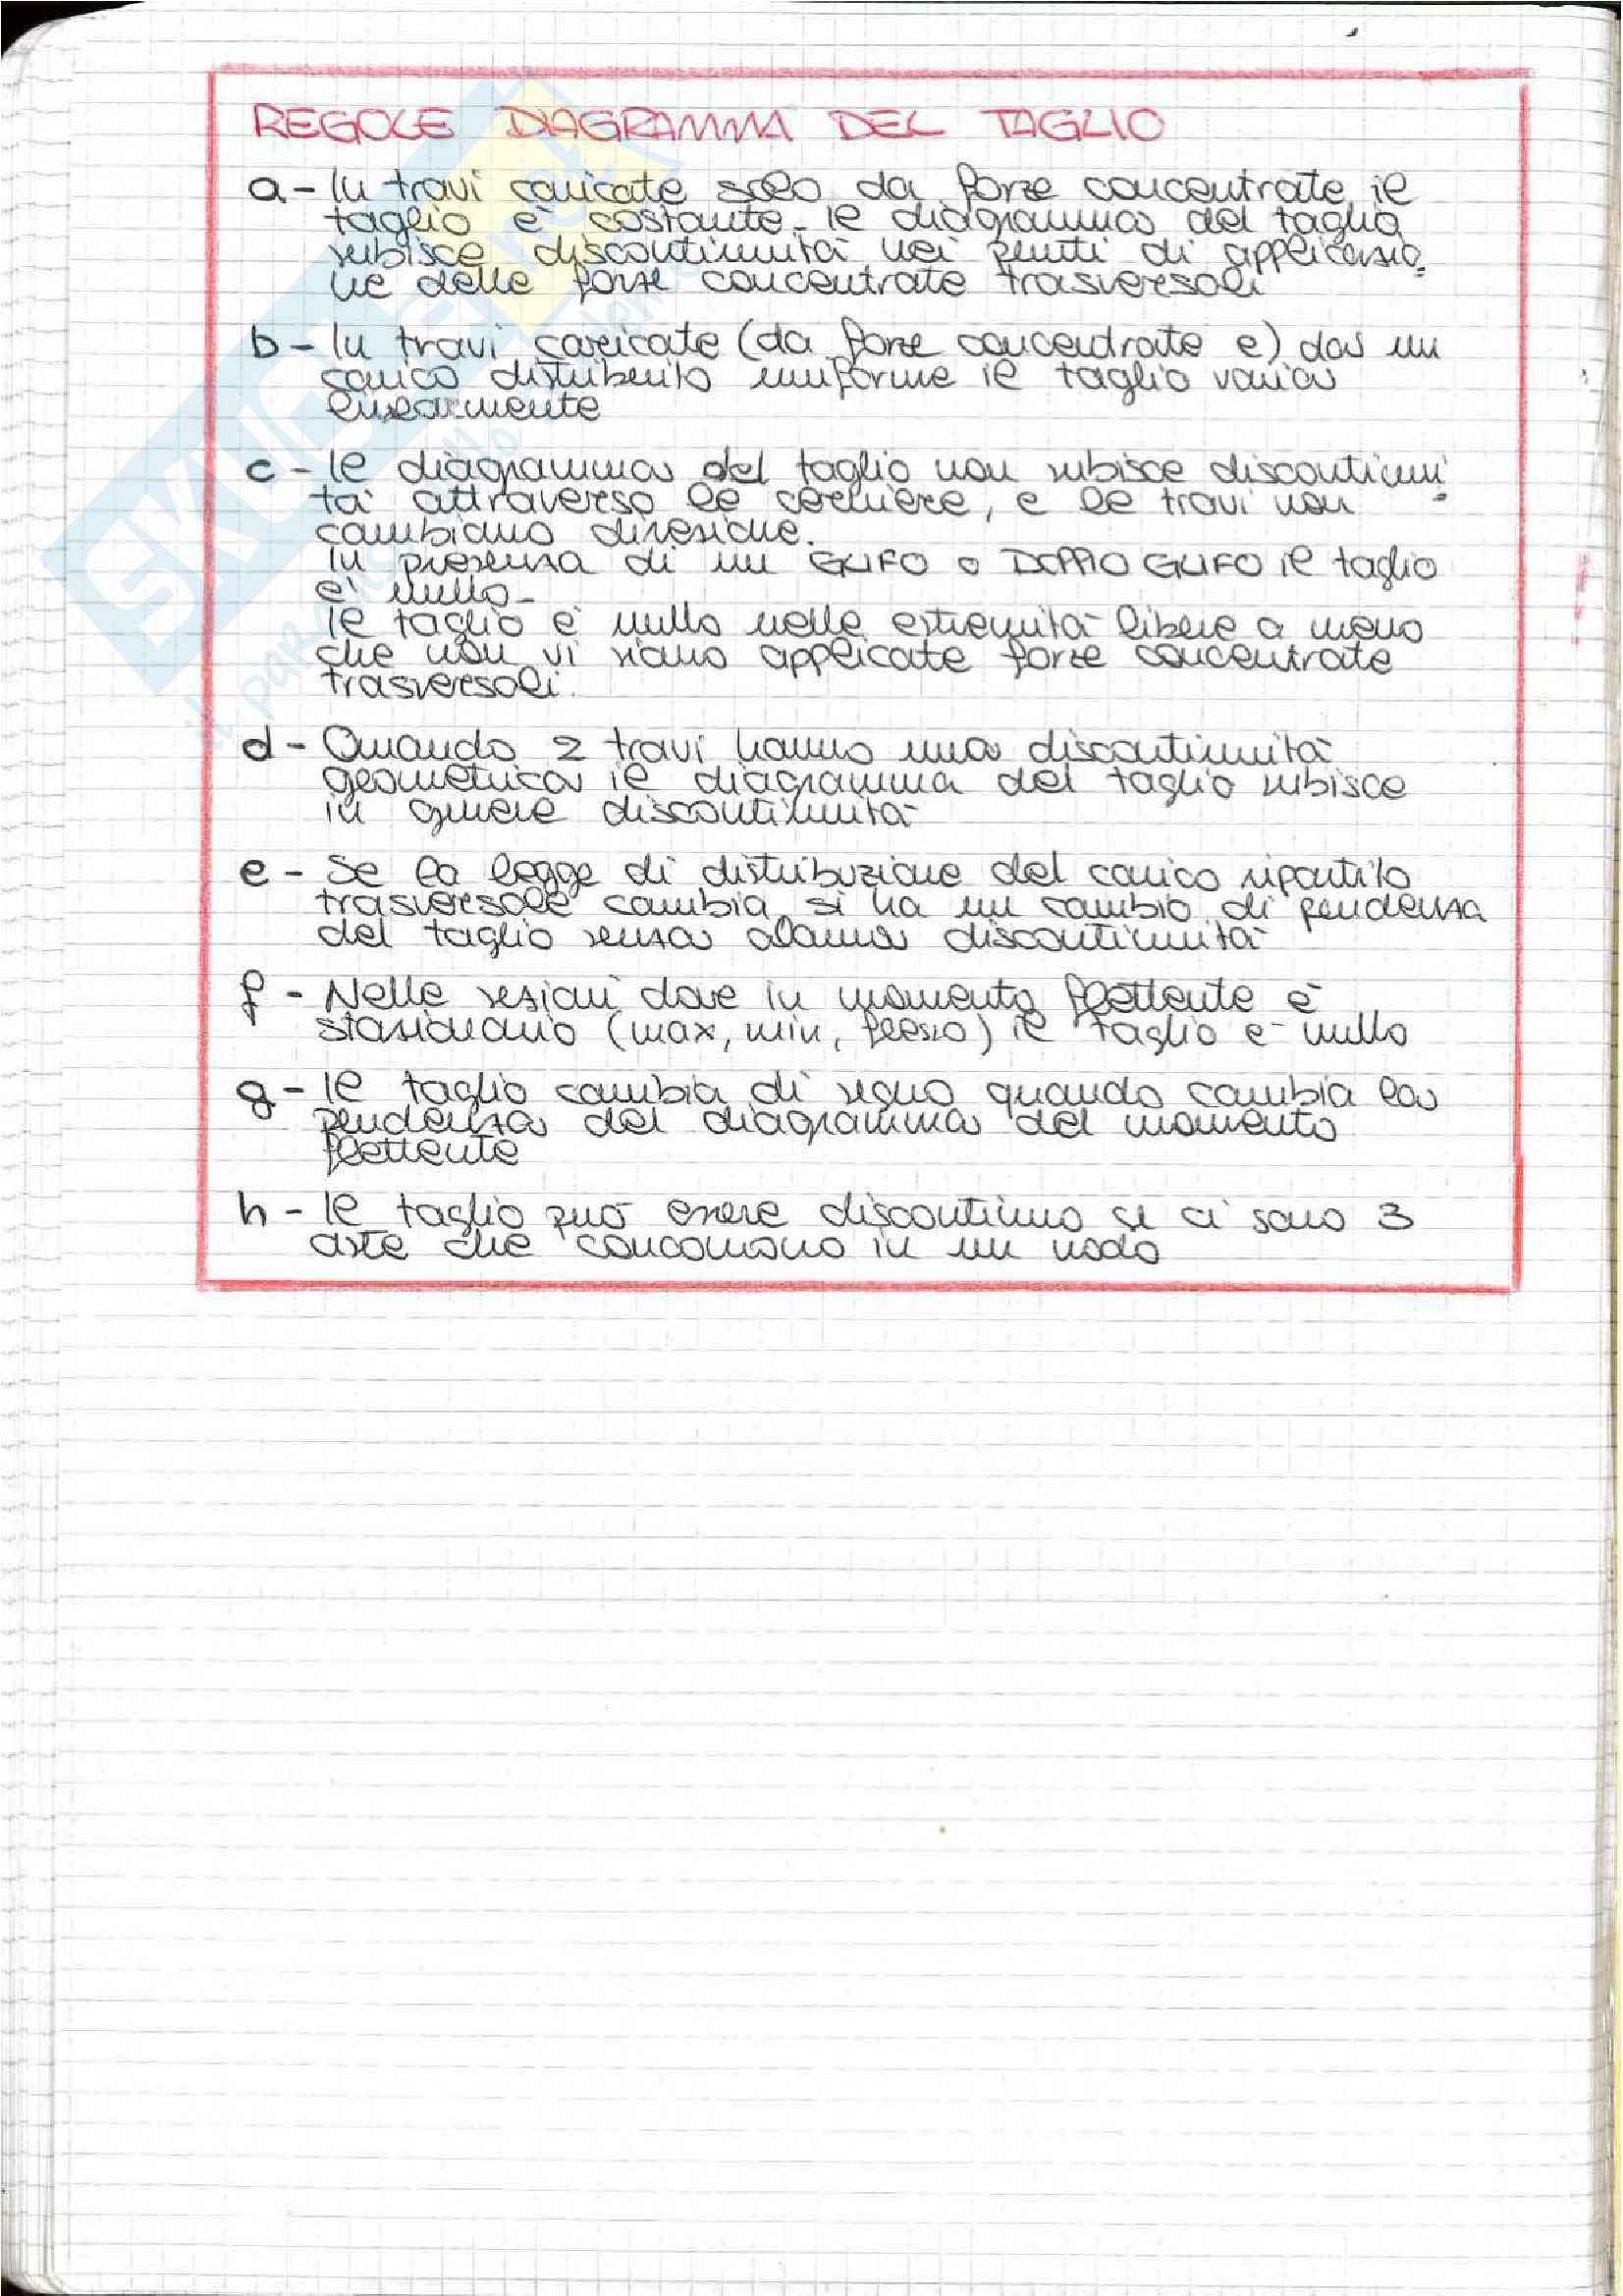 REGOLE DIAGRAMMA DEL TAGLIO
a - In travi caricate solo da forze concentrate il
taglio è costante - Il diagramma del taglio
subisce discontinuità nei punti di applicazio=
ne delle forze concentrate trasversali
b - In travi caricate (da forze concentrate e) da un
carico distribuito uniforme il taglio varia
linearmente
c - Il diagramma del taglio non subisce discontinui=
tà attraverso le cerniere, e le travi non
cambiano direzione.
In presenza di un GLIFO o DOPPIO GLIFO il taglio
è nullo -
Il taglio è nullo nelle estremità libere a meno
che non vi siano applicate forze concentrate
trasversali.
d - Quando 2 travi hanno una discontinuità
geometrica il diagramma del taglio subisce
in genere discontinuità
e - Se la legge di distribuzione del carico ripartito
trasversale cambia si ha un cambio di pendenza
del taglio senza alcuna discontinuità
f - Nelle sezioni dove in momento flettente è
stazionario (max, min, flesso) il taglio è nullo
g - Il taglio cambia di segno quando cambia la
pendenza del diagramma del momento
flettente
h - Il taglio può essere discontinuo se ci sono 3
aste che concorrono in un nodo
SKUOLA.net